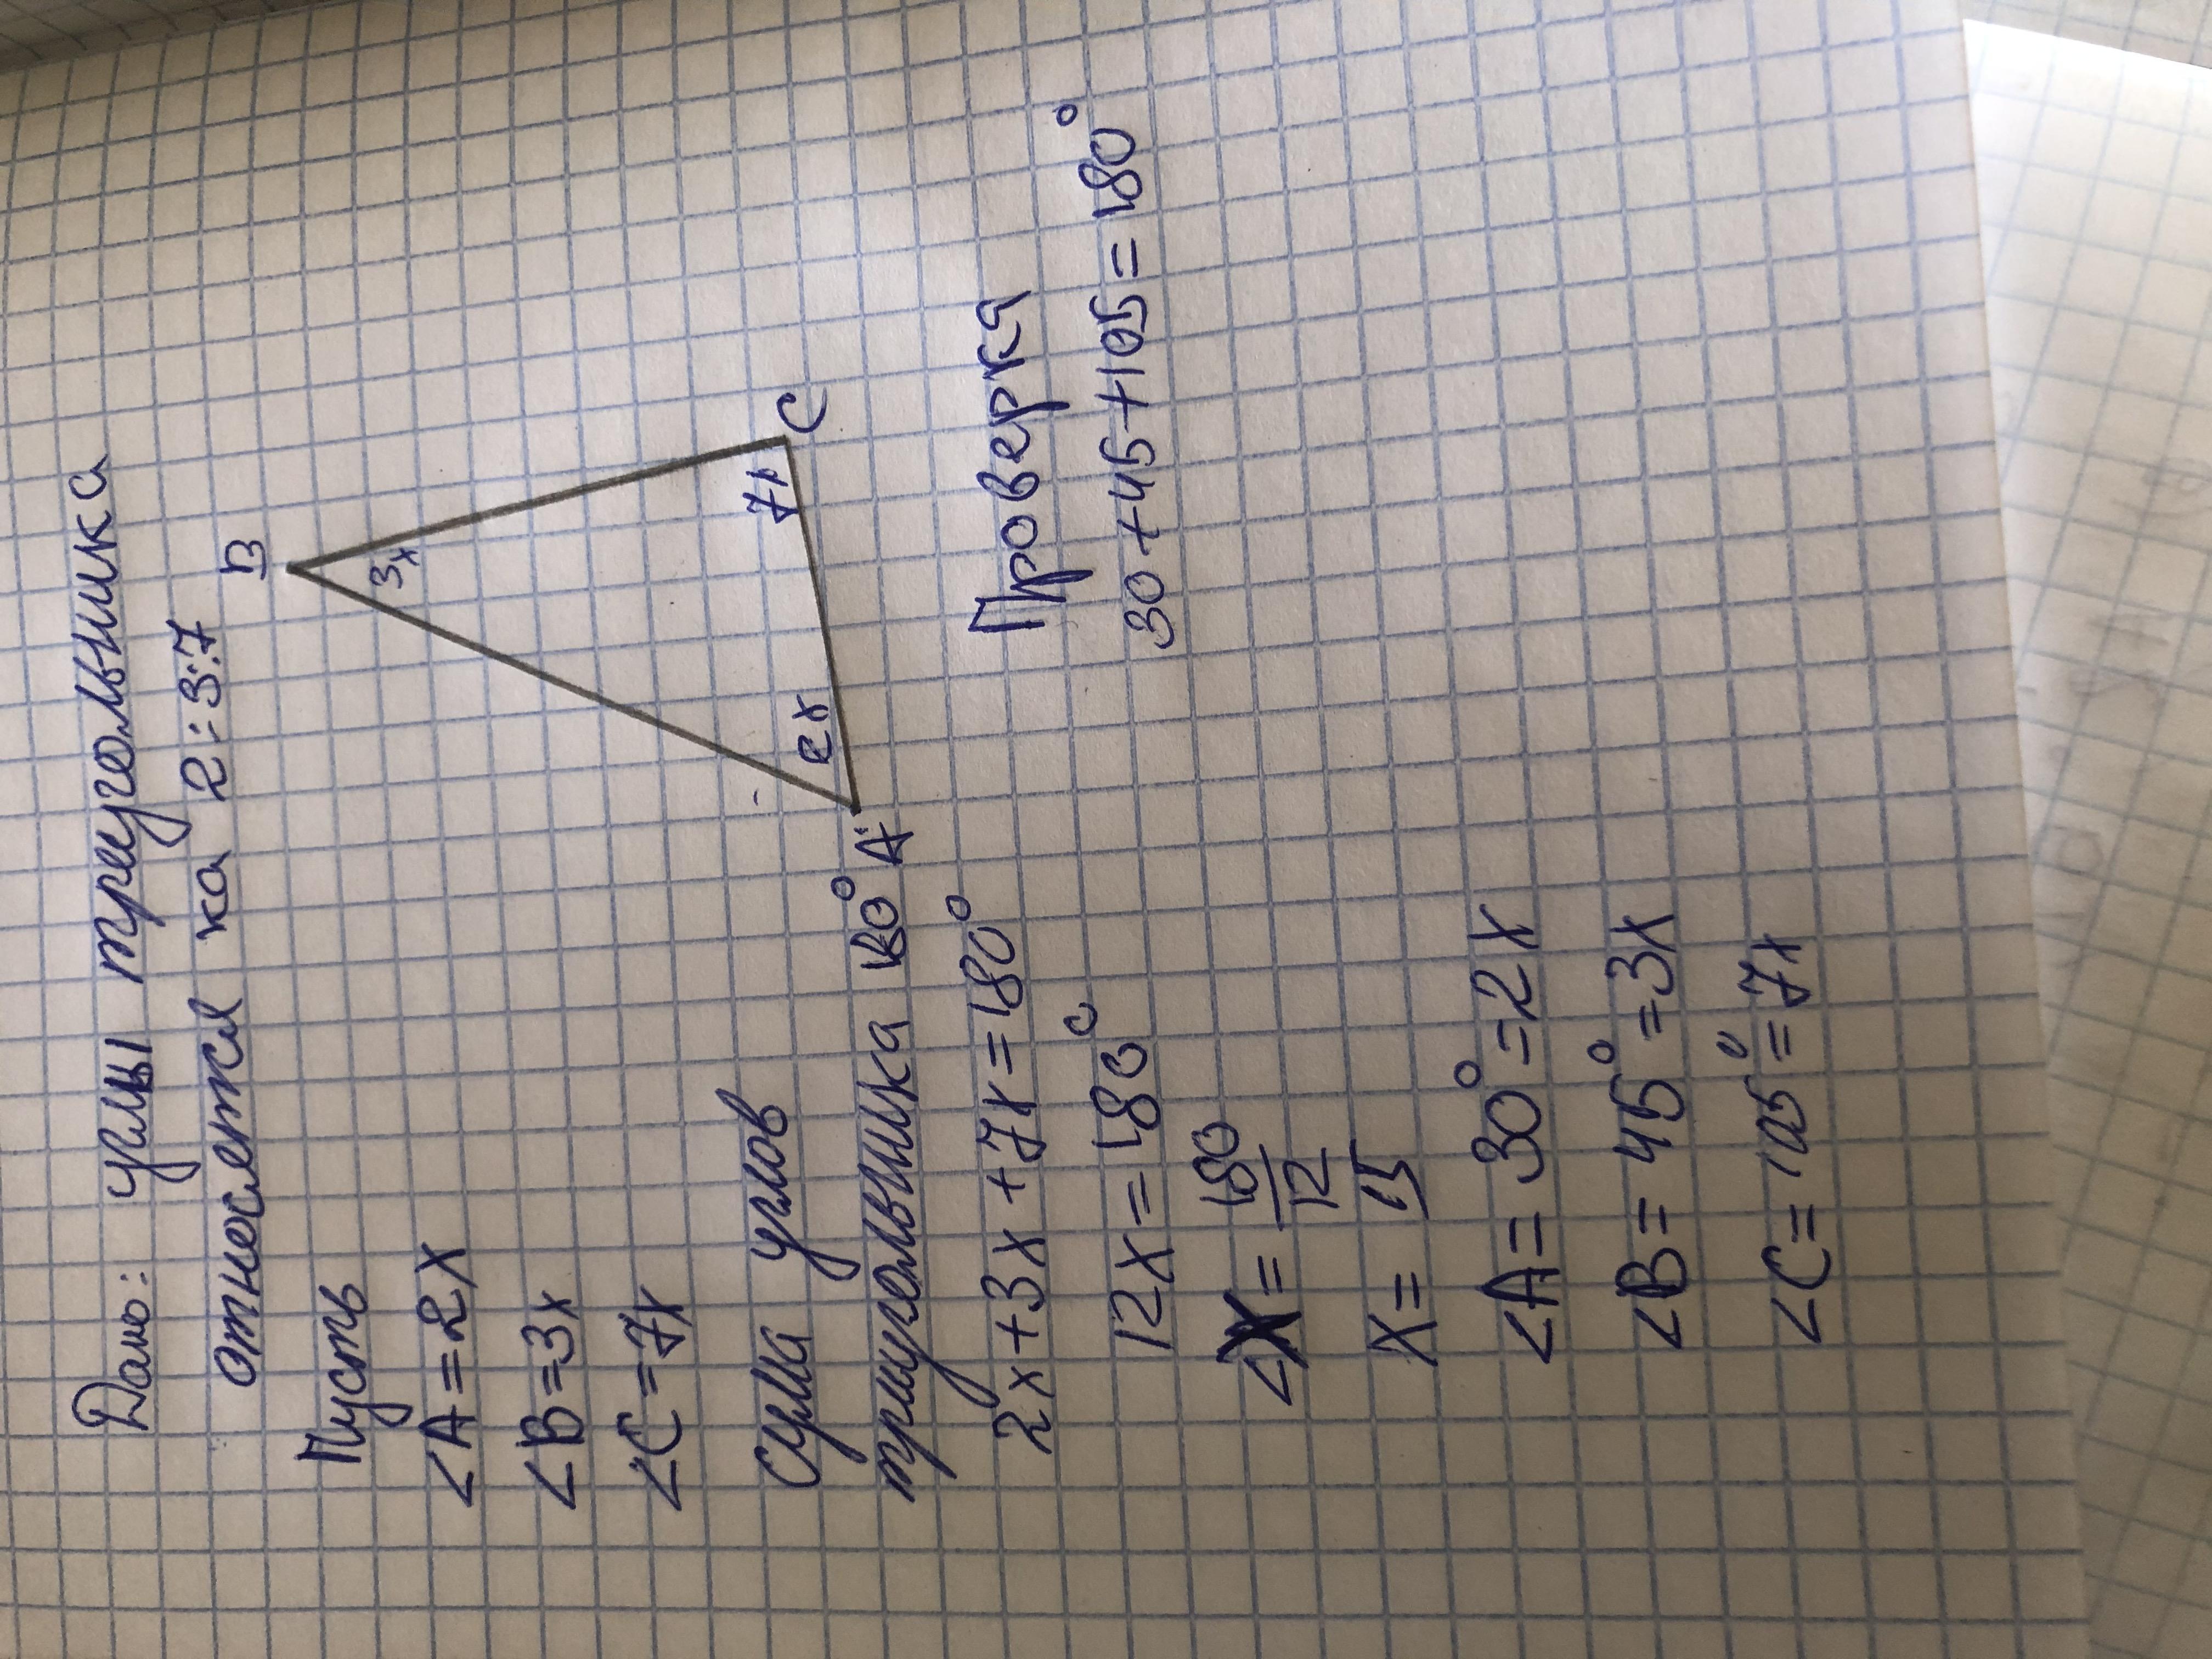 Дано: углы треугольника
относятся ка 2:3:7
Пусть
<A=2x
<B=3x
<C=7x
B
3x
2x
7x
A
C
Сума углов
триугольника 180°
2x+3x+7x=180°
12x=180°
x=180/12
x=15
<A=30°=2x
<B=45°=3x
<C=105°=7x
Проверка
30+45+105=180°